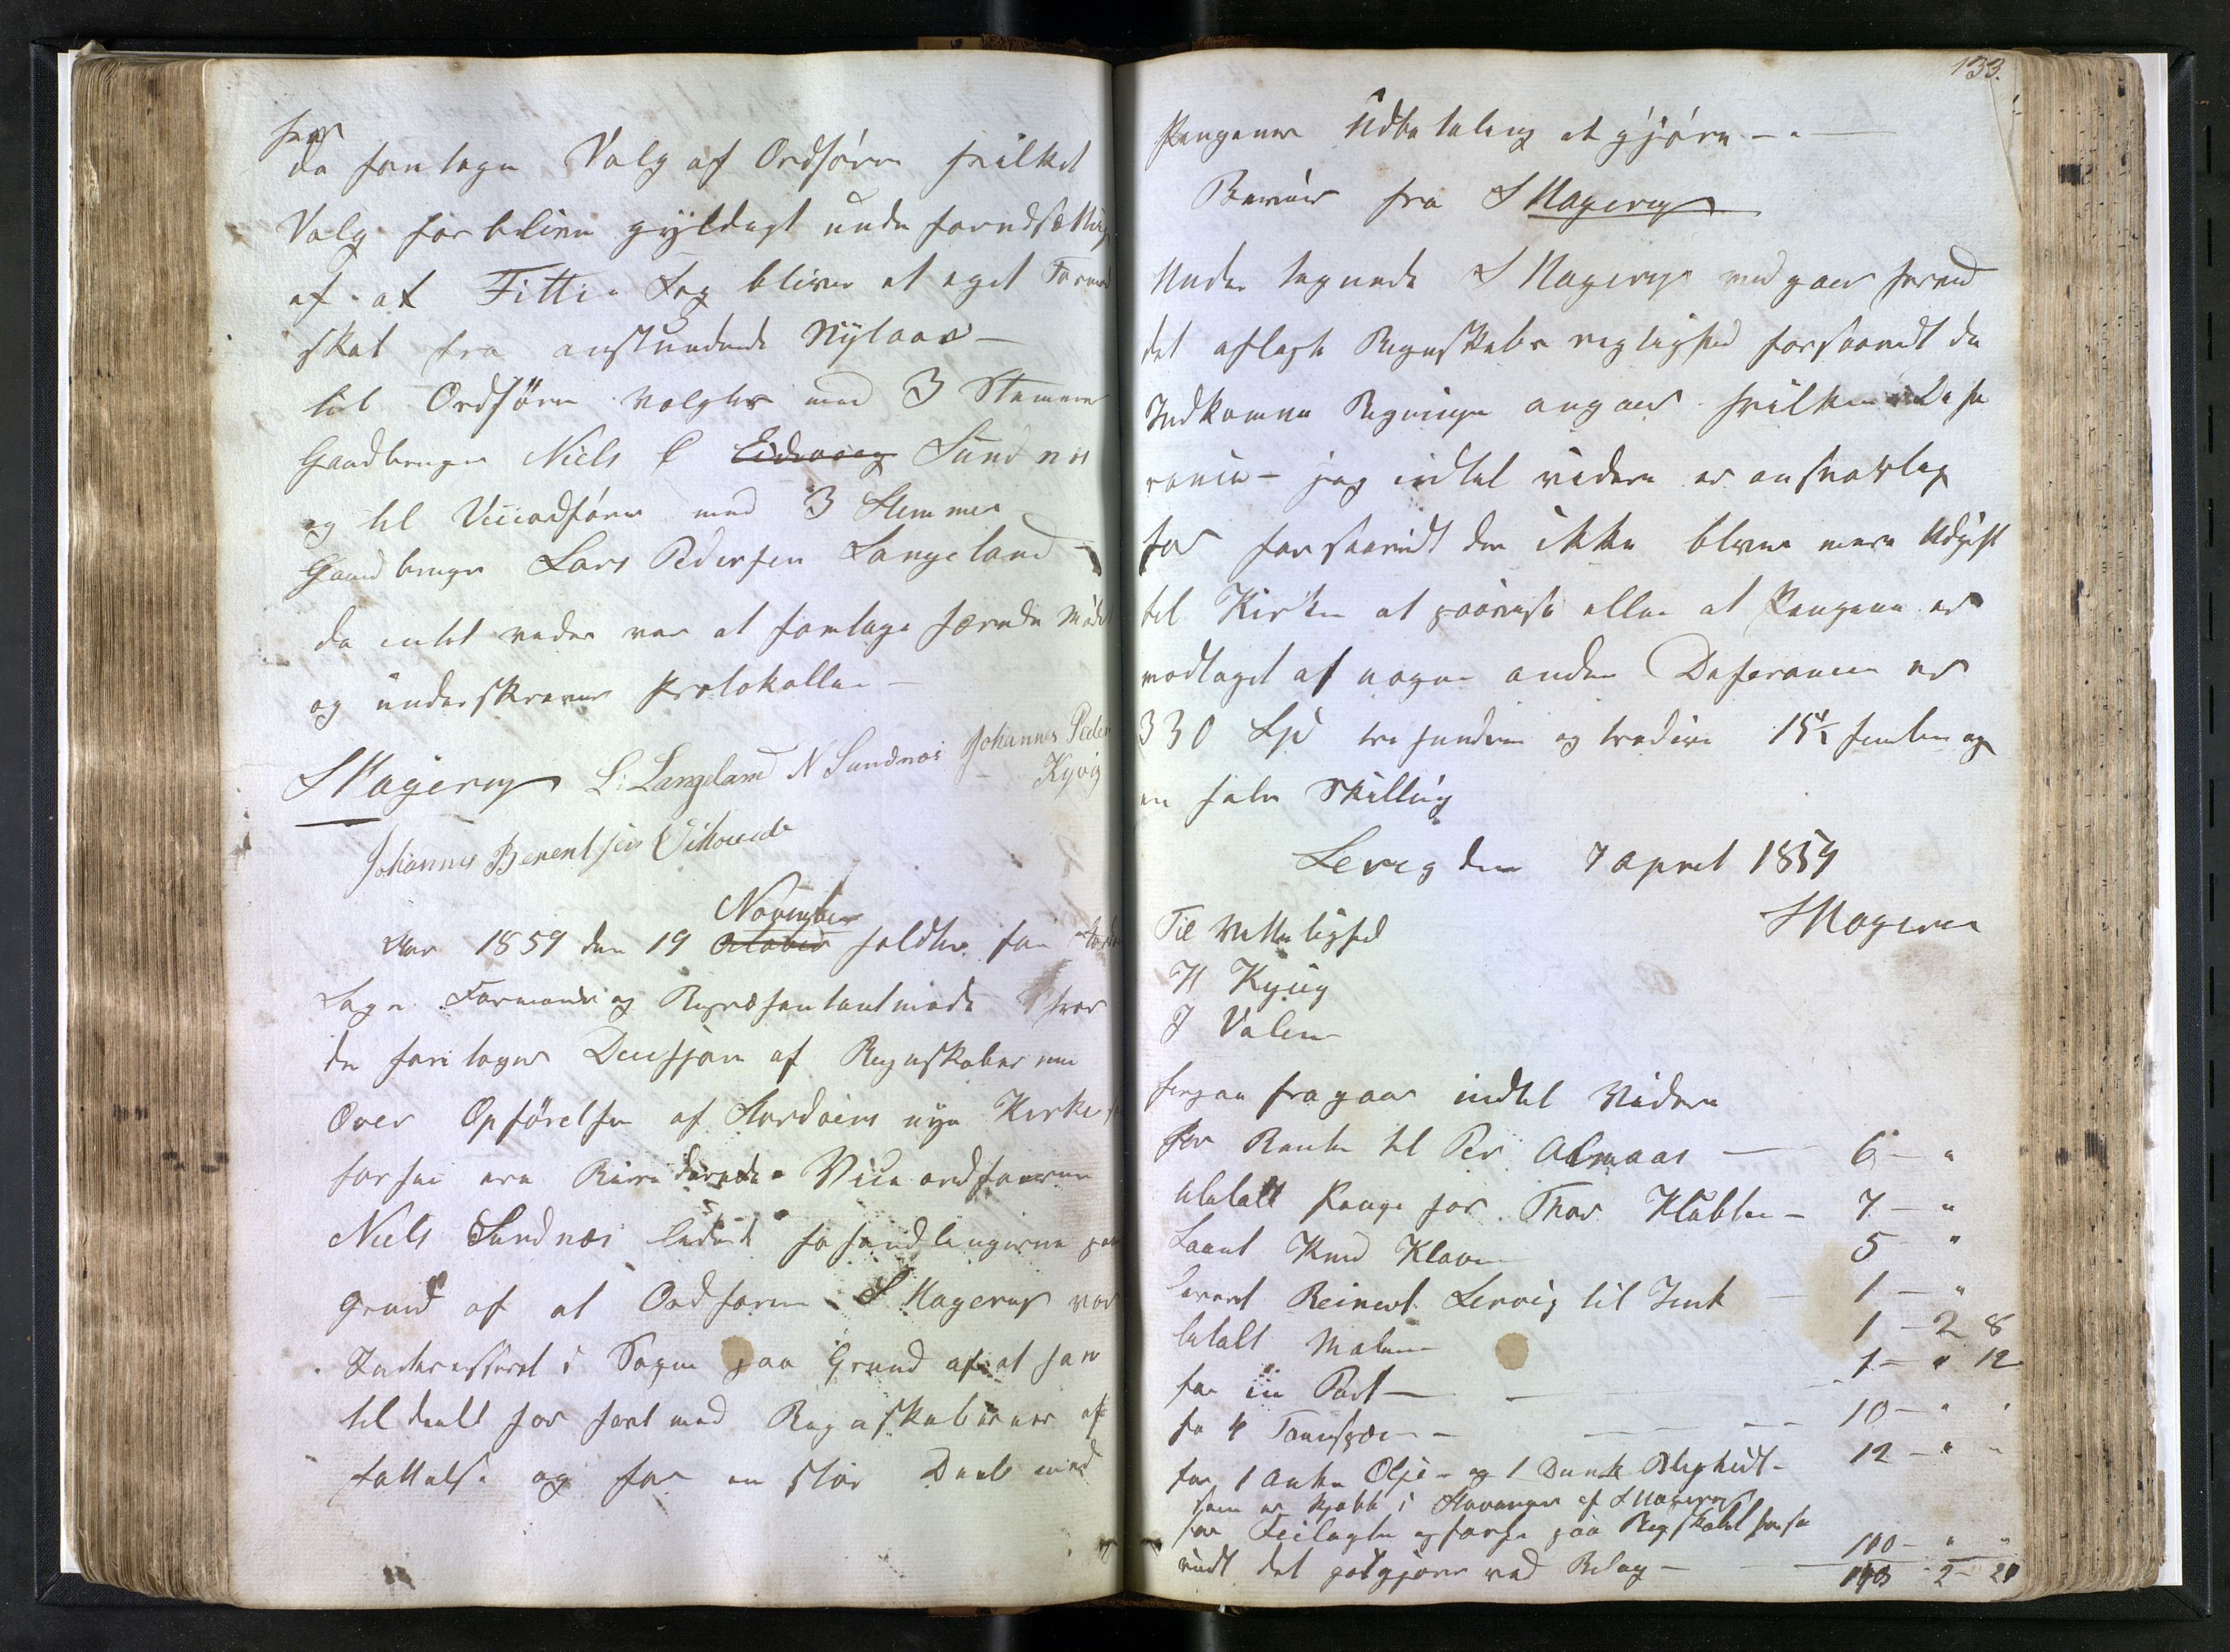 har
da foretagen Valg af Ordfører hvilket
Valg har bliven gyldigt under forudsætting
af at Fittie Sog bliver et eget Formand
skab fra anstundende Nytaar –
til Ordfører valgtes med 3 Stemmer
Gaardbruger Niels Eidevaag Sundnæs
og til Viceordfører med 3 Stemmer
Gaardbruger Lars Pedersen Langeland –
da intet vider var at foretage hævedes Mødet
og underskrever Protokollen –
S Hagerup L: Langeland N Sundnæs Johannes Peder
Kyvig
Johannes Berentsen Vikanede
November
Aar 1859 den 19 October holdtes for
Formands og Repræsentantmøde hvor
der foretoges Decisjon af Regnskaberne
Over Opførelsen af Stordøens nye Kirke
Viceordføreren
Niels Sundnæs ledede forhandlingerne paa
Grund af at Ordføren S Hagerup var
Interesseret i Sagen paa Grund af at han
til deels har havt med Regnskabernes af
fattelse og har en stor Deel med
133.
Pengenes Udbetaling at gjøre – . –
Beviis fra S Hagerup
Undertegnede S Hagerup vedgaar herved
det aflagte Regnskabs rigtighed forsaavidt de
Indkomne Regninger angaar hvilken Defe
rance – jeg indtet videre er ansvarlig
for forsaavidt der ikke bliver mere Udgift
til Kirken at paavise eller at Pengene er
modtaget af nogen anden Deferancen er
330 Spd tre hundrede og tredive 15½ femten og
en halv Skilling
Lervig den 7 April 1859
S Hagerup
Til Vitterlighed
H Kyvig
J Valen
herpaa fragaar indtet Videre
for Rente til Per Almaas – 6 – "
utatalt Penge for Thor Klubben – 7 – "
Laant Knud Klaven 5 "
leveret Reinert Lervig til Indt – 1 – "
betalt Maleren 1 – 2 8
for en Port – 1 – " 12
for 4 Tournhæn – 10 – " "
for 1 Anker Olje – og 1 Dunk Blyhvidt – 12 – " "
som er kjøbt i Stavanger af S Hagerup
for Feilagte og forse paa Regskabet forsa
vidt det godtgjøres ved Bilag – 100 – " "
143 2 – 20